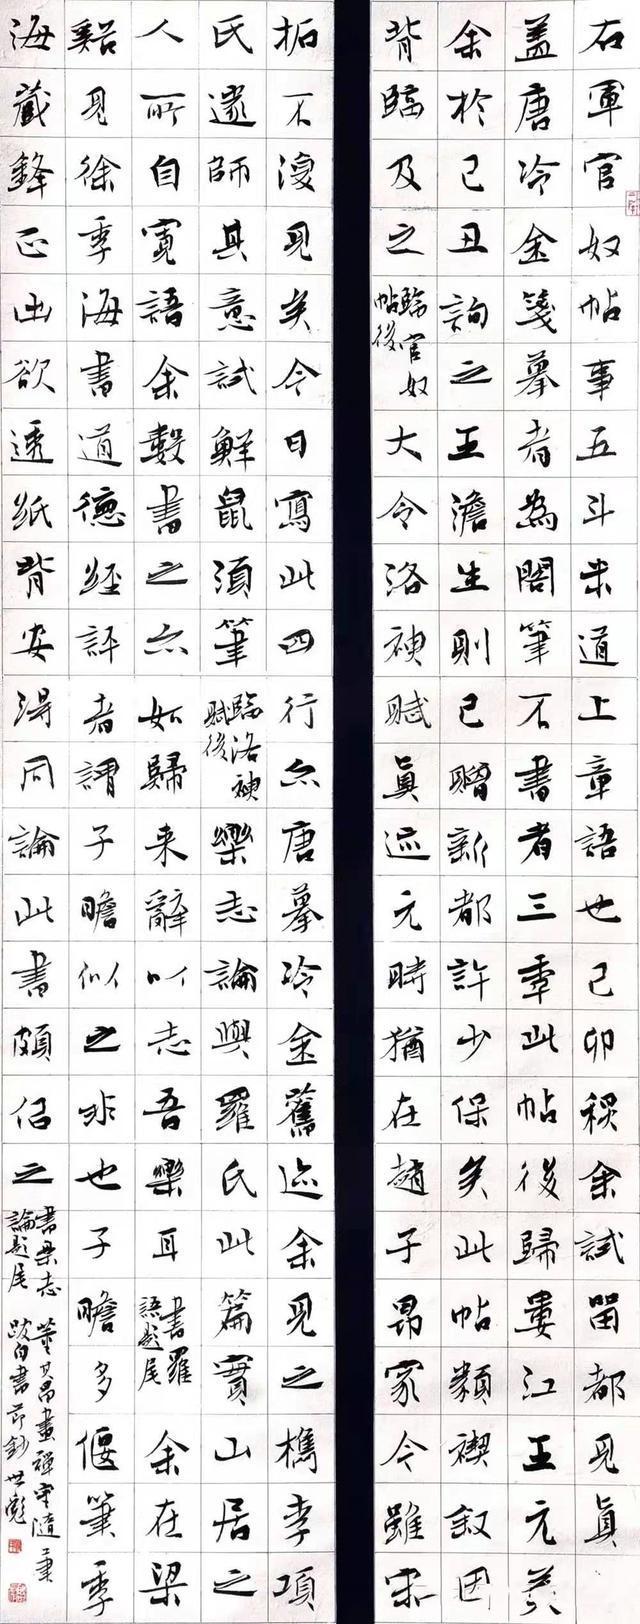 右軍官奴帖事五斗米道上章語也己卯秋余試留都見真
蓋唐冷金箋摹者為閣筆不書者三年此帖後歸婁江王元美
余於己丑詢之王澹生則已贈新都許少保矣此帖類禊敘因
背臨及之臨官奴帖後大令洛神賦真迹元時猶在趙子昂家今雖宋
拓不復見矣今日寫此四行亦唐摹冷金舊迹余見之檇李項
氏遂師其意試鮮鼠須筆臨洛神賦後樂志論與羅氏此篇實山居之
人所自寬語余數書之亦如歸来辭以志吾樂耳書羅語題尾余在梁
谿見徐季海書道德經評者謂子瞻似之非也子瞻多偃筆季
海藏鋒正画欲透紙背安得同論此書頗佀之書樂志論題尾
董其昌畫禪室隨筆
跋自書節鈔世彪